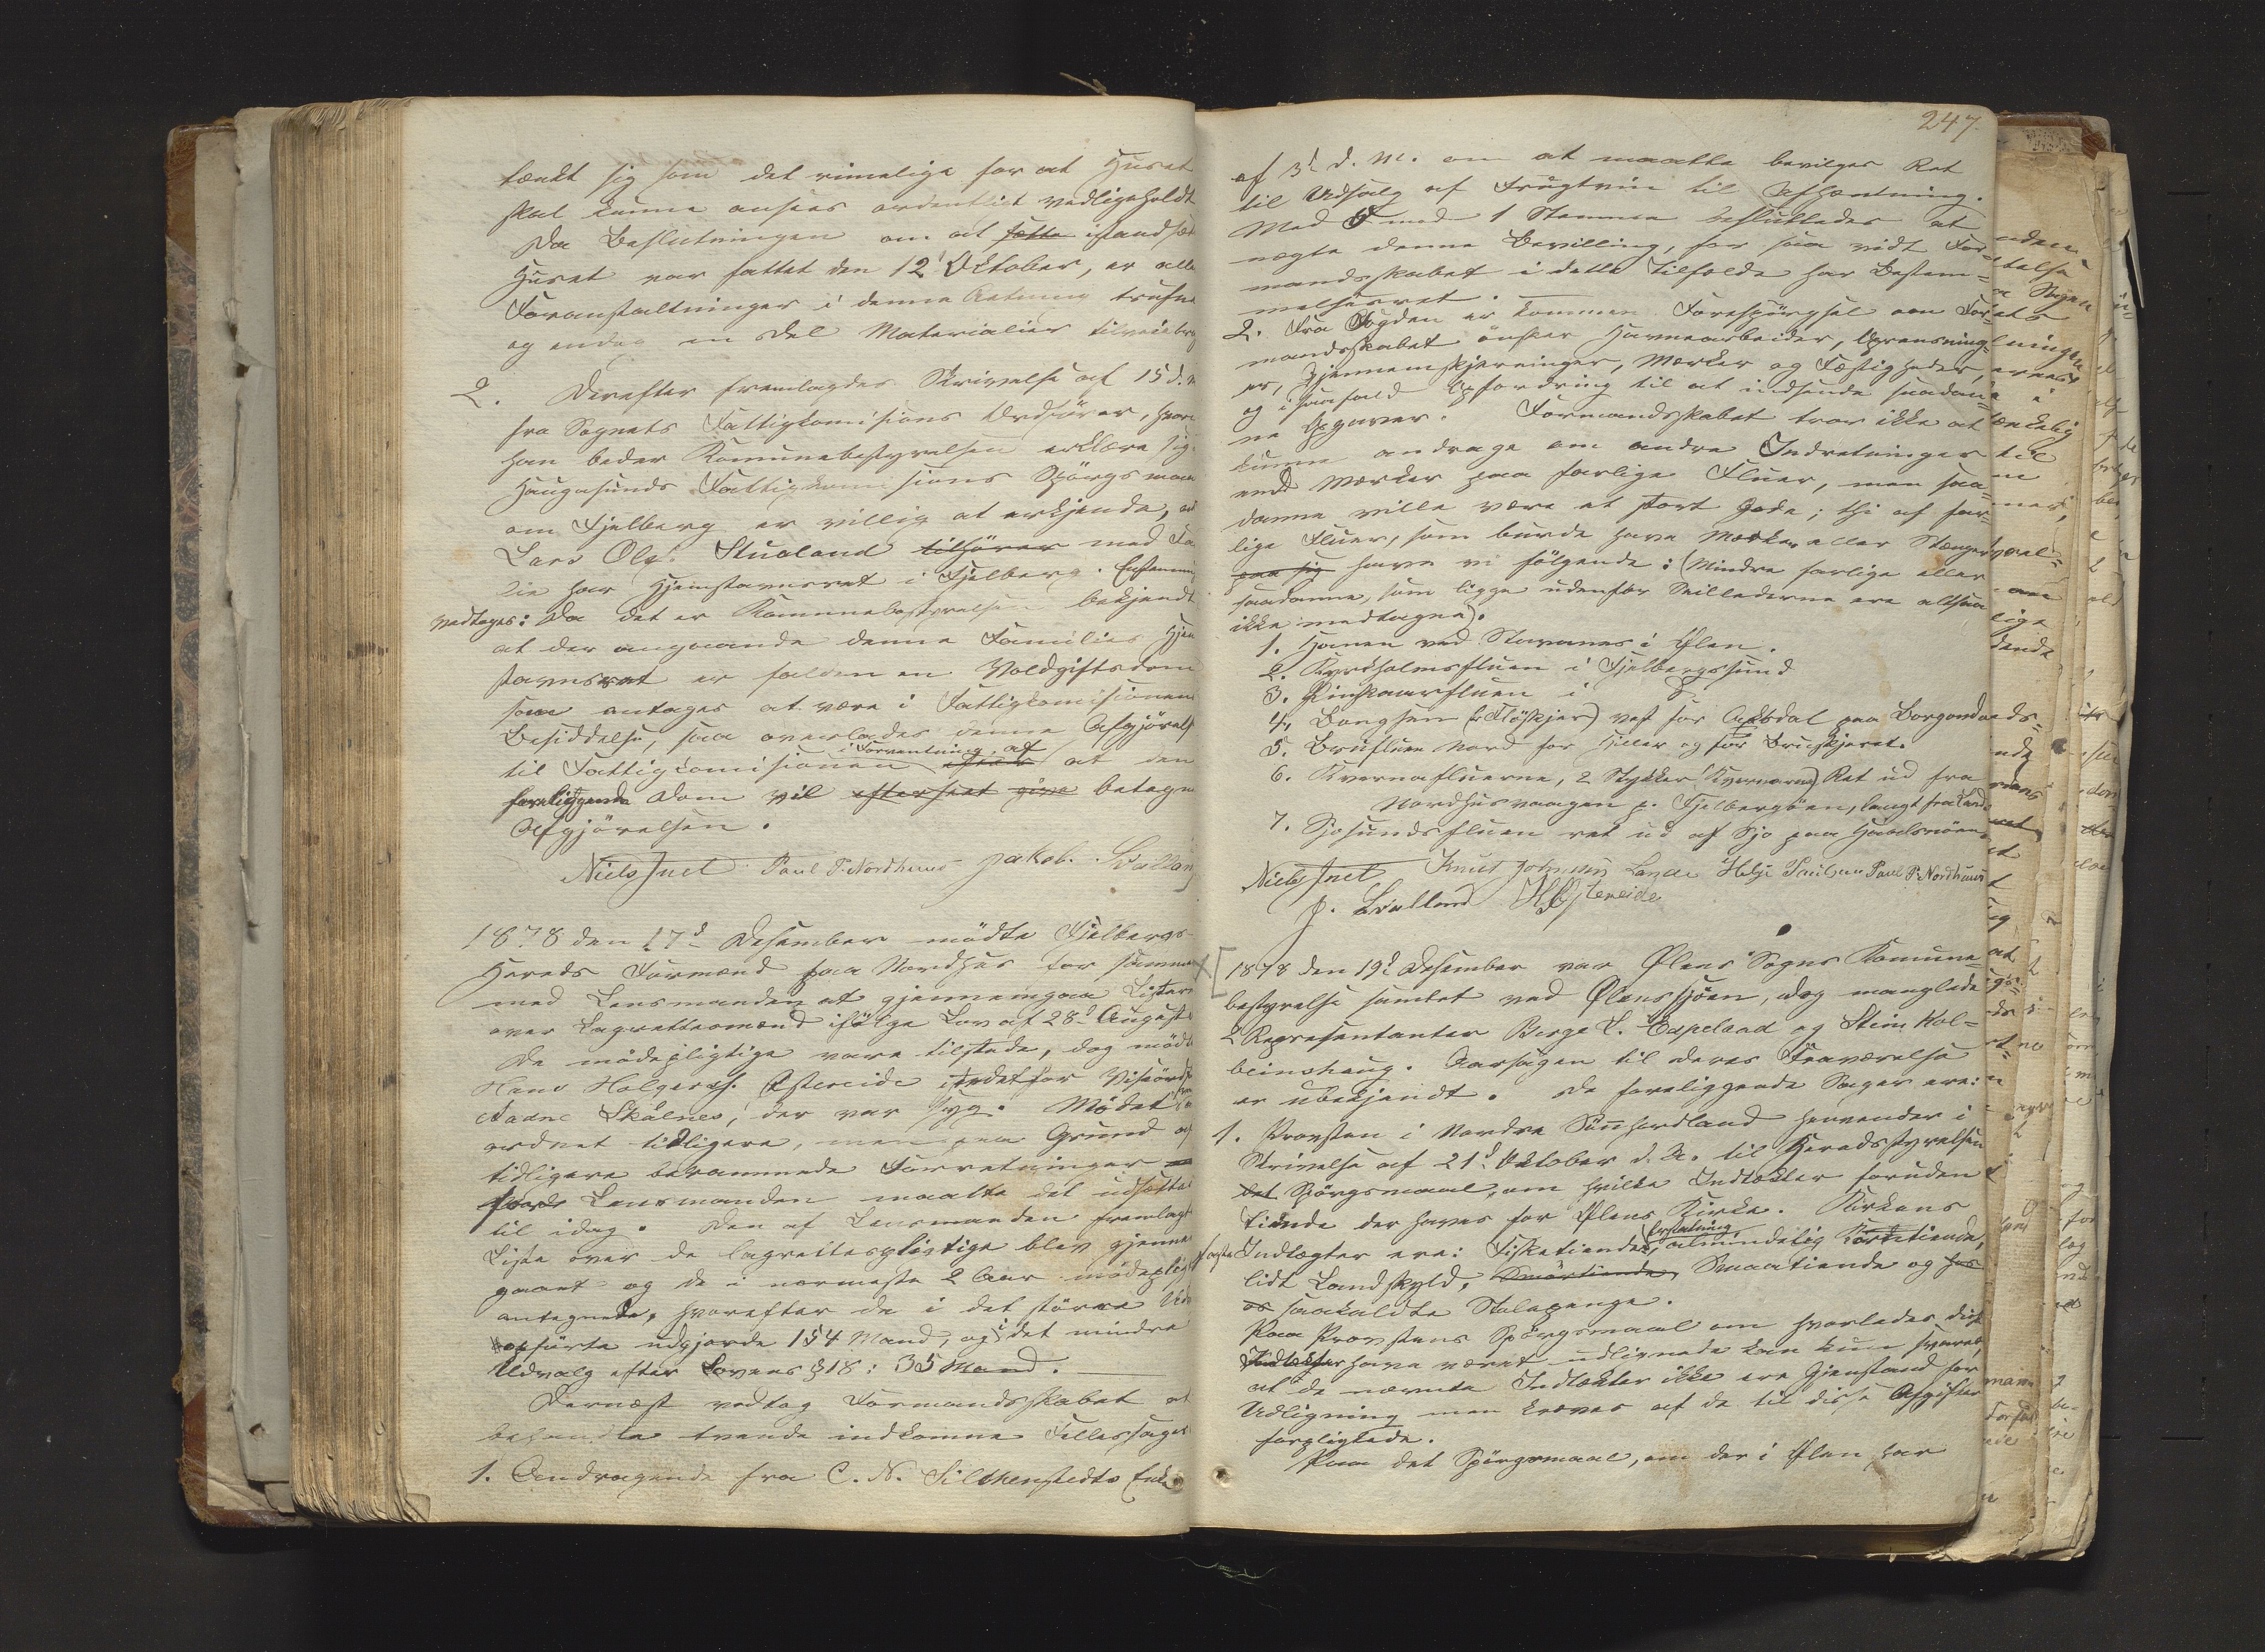 tænkt sig som det rimelige for at Huset
skal kunne ansees ordentligt vedligeholdt
Da Beslutningen om at sætte istandsæt
Huset var fattet den 12t Oktober, er alle
Foranstaltninger i denne Retning trufne
og endog en Del Materialier tilveiebrag
2. Derefter fremlagdes Skrivelse af 15 d. M
fra Sognets Fattigkomisions Ordfører, hvori
han beder Komunebestyrelsen erklære sig
Haugesunds Fattigkomisions Spørgsmaal
om Fjelberg er villig at erkjende, at
Lars Ols. Stualand tilhører med Fa
lie har Hjemstavnsret i Fjelberg. Enstemmig
vedtoges: Da det er Komunebestyrelsen bekjendt
at der angaaende denne Families Hjem
stavnsret er falden en Voldgiftsdom
som antages at være i Fattigkomisionens
Besiddelse, saa overlades denne Afgjørelse
til Fattigkomisionen i Forventning af at den
foreliggende Dom vil efterseet give betegne
Afgjørelsen.
Niels Juel Paul P. Nordhuus Jakob. Svalland
1878 den 17d Desember mødte Fjelbergs
Hereds Formænd paa Nordhus for sammen
med Lensmanden at gjennemgaa Listere
over Lagrettesmænd ifølge Lov af 28d August
De mødepligtige vare tilstede, dog mødte
Hans Holgers. Østereide istedetfor Viseordf
Aadne Skålnes, der var syg. Mødet var
ordnet tidligere, men paa Grund af
tidligere berammede Forretninger
Lensmanden maatte det udsættes
til idag. Den af Lensmanden fremlagte
Liste over de lagrettespligtige blev gjennem
gaaet og de i nærmeste 2 Aar mødepligt
antegnede, hvorefter de i det større Udv
opførte udgjorde 154 Mand, og i det mindre
Udvalg efter Lovens § 18: 35 Mand.
Dernæst vedtog Formandsskabet at
behandle tvende indkomne Fællessager
1. Andragende fra C. N. Silthenstedts Enke
247
af 3d d. M. om at maatte bevilges Ret
til Udsalg af Frugtvin til Afhentning.
Med 5 mod 1 Stemme besluttedes at
negte denne Bevilling, for saa vidt For-
mandsskabet i dette Tilfælde har Bestem-
melsesret.
2. Fra Fogden er kommen Forespørgsel om For-
mandsskabet ønsker Havnearbeider, Oprensning-
er, Gjennemskjæringer, Mærker og Fæstigheder,
og i saafald Opfordring til at indsende saadan-
ne Opgaver. Formandsskabet tror ikke at
kunne andrage om andre Indretninger
end Mærker paa farlige Fluer, men saa-
danne ville være et stort Gode; thi af far-
lige Fluer, som burde have Mærker eller Stænger
paa sig have vi følgende: (Mindre farlige eller
saadanne, som ligge udenfor Seilladerne ere altsaa
ikke medtagne).
1. Hanen ved Stavanes i Ølen.
2. Kyrdholmsfluen i Fjelbergssund
3. Rinskaarsfluen i
4, Bongsen (: Fløskjær) vest for Aksdal paa Borgundø
5. Brufluen Nord for Hiller og for Bruskjæret.
6. Kvernafluerne, 2 Stykker (Kvernarne) Ret ud fra
Nordhusvaagen p. Fjelbergøen, langt fra Land.
7. Sjosundsfluen ret ud af Sjo paa Halsnøen
Niels Juel Knud Johnsen Lande Helje Paulsen Paul P. Nordhuus
J. Svalland H. H. Østereide
1878 den 19d Desember var Ølens Sogns Komune-
bestyrelse samlet ved Ølenssjøen, dog manglede
2 Representanter Berge T. Espeland og Stein Kol-
beinshaug. Aarsagen til deres Fraværelse
er ubekjendt. De foreliggende Sager ere:
1. Provsten i Nordre Søndhordland henvender i
Skrivelse af 21d Oktober d. A. til Heredsstyrelsen
det Spørgsmaal, om hvilke Indtækter foruden
Tiende der haves for Ølens Kirke. Kirkens
faste Indtægter ere: Fisketiendes Erstatning, almindelig Korntiende,
lidt Landskyld, Smørtiende, Smaatiende og
saakaldte Stolepenge.
Paa Provstens Spørgsmaal om hvorledes disse
Indtækter have været udlignede kan kun svares,
at de nævnte Indtækter ikke ere Gjenstand for
Udligning men kræves af de til disse Afgifter
forpligtede.
Paa det Spørgsmaal, om der i Ølen har